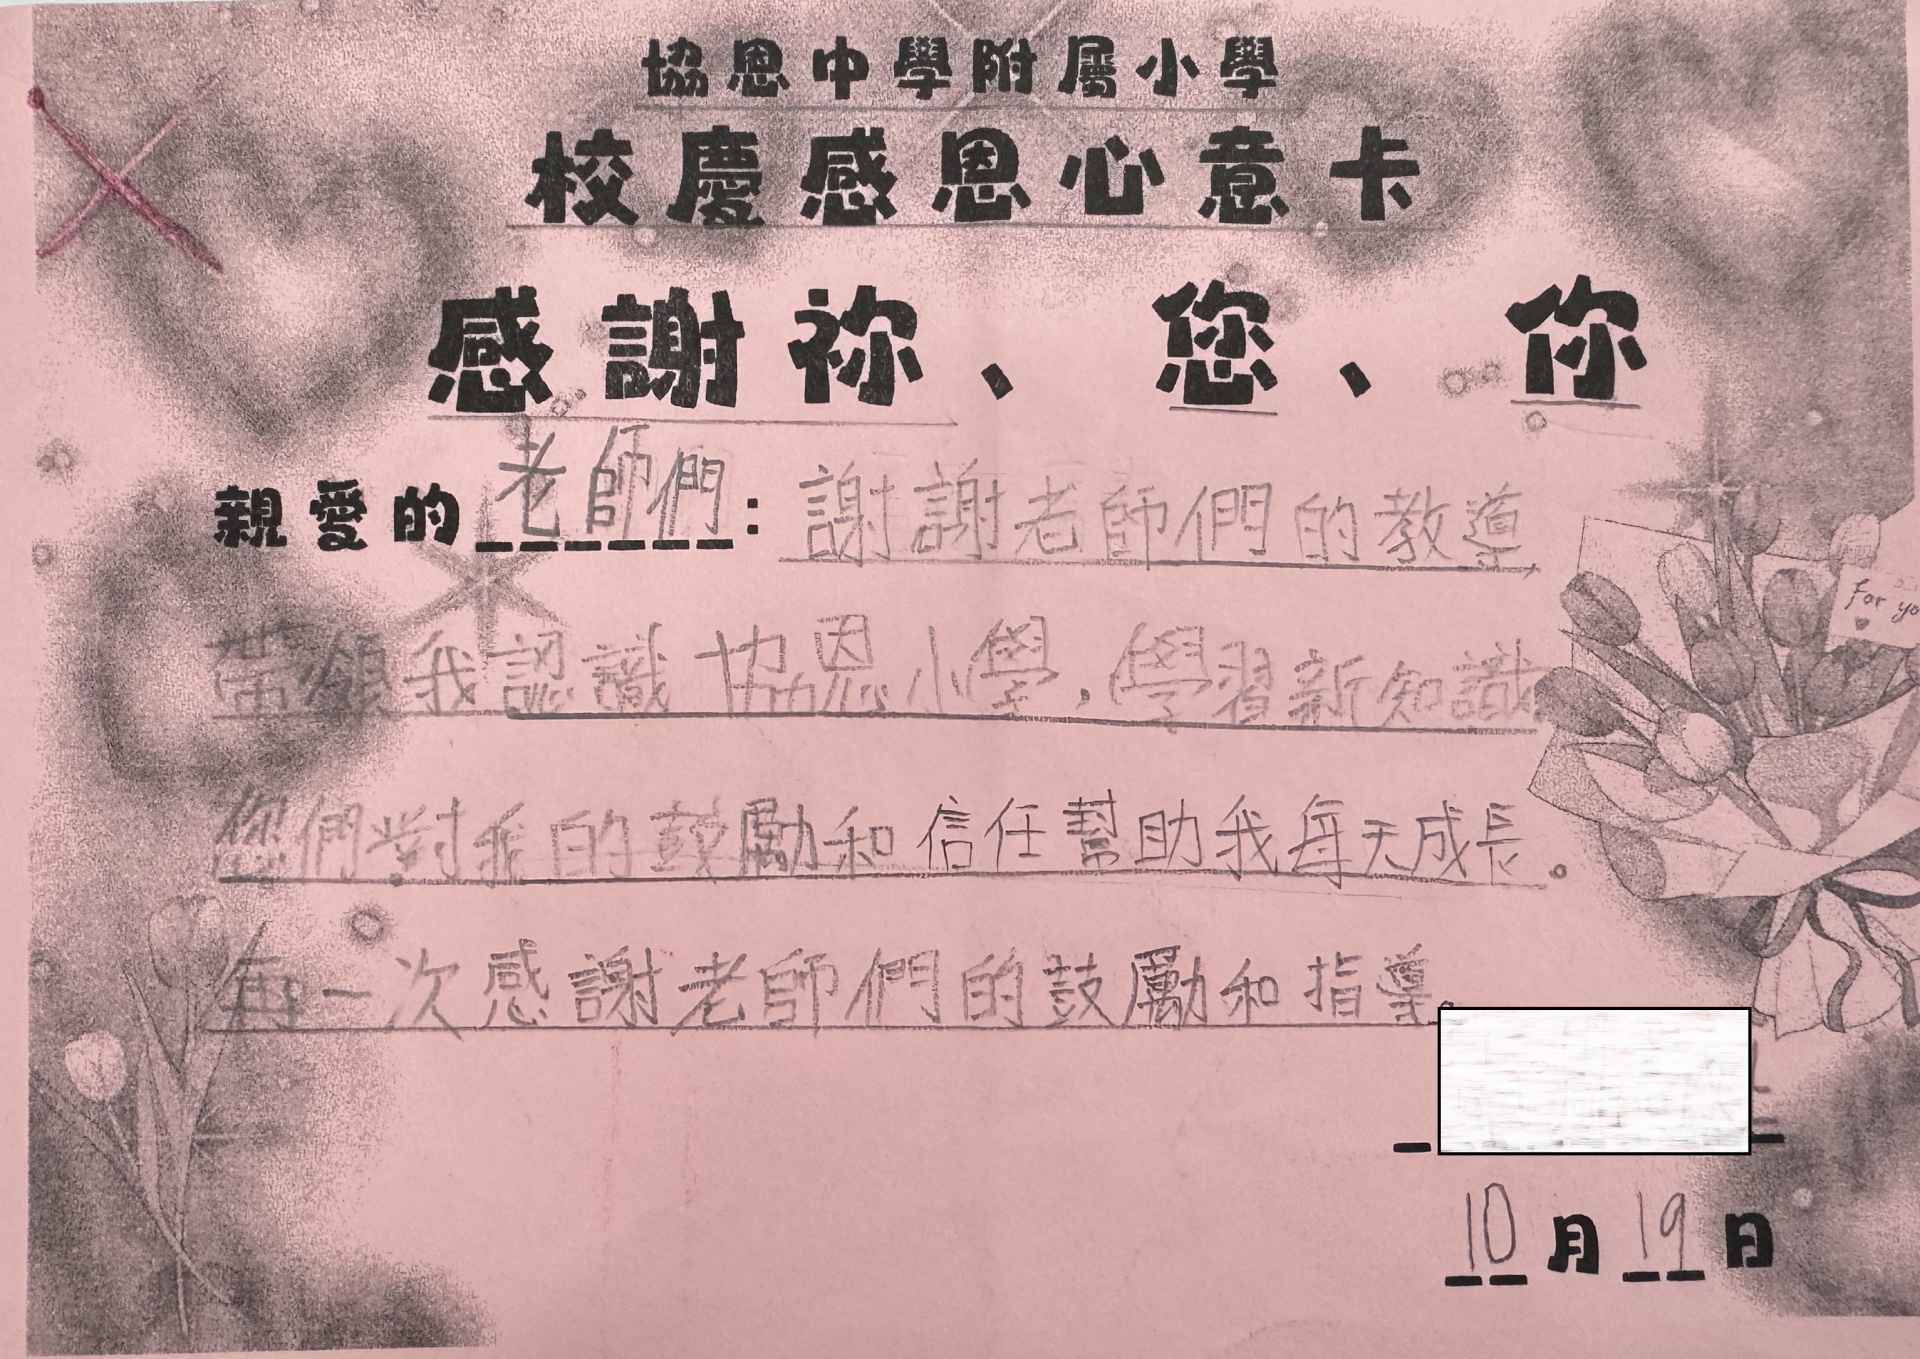 協恩中學附屬小學
校慶感恩心意卡
感謝祢、您、你
親愛的老師們：謝謝老師們的教導，
帶領我認識協恩小學，學習新知識。
您們對我的鼓勵和信任幫助我每天成長。
再一次感謝老師們的鼓勵和指導。
10月19日
For yo